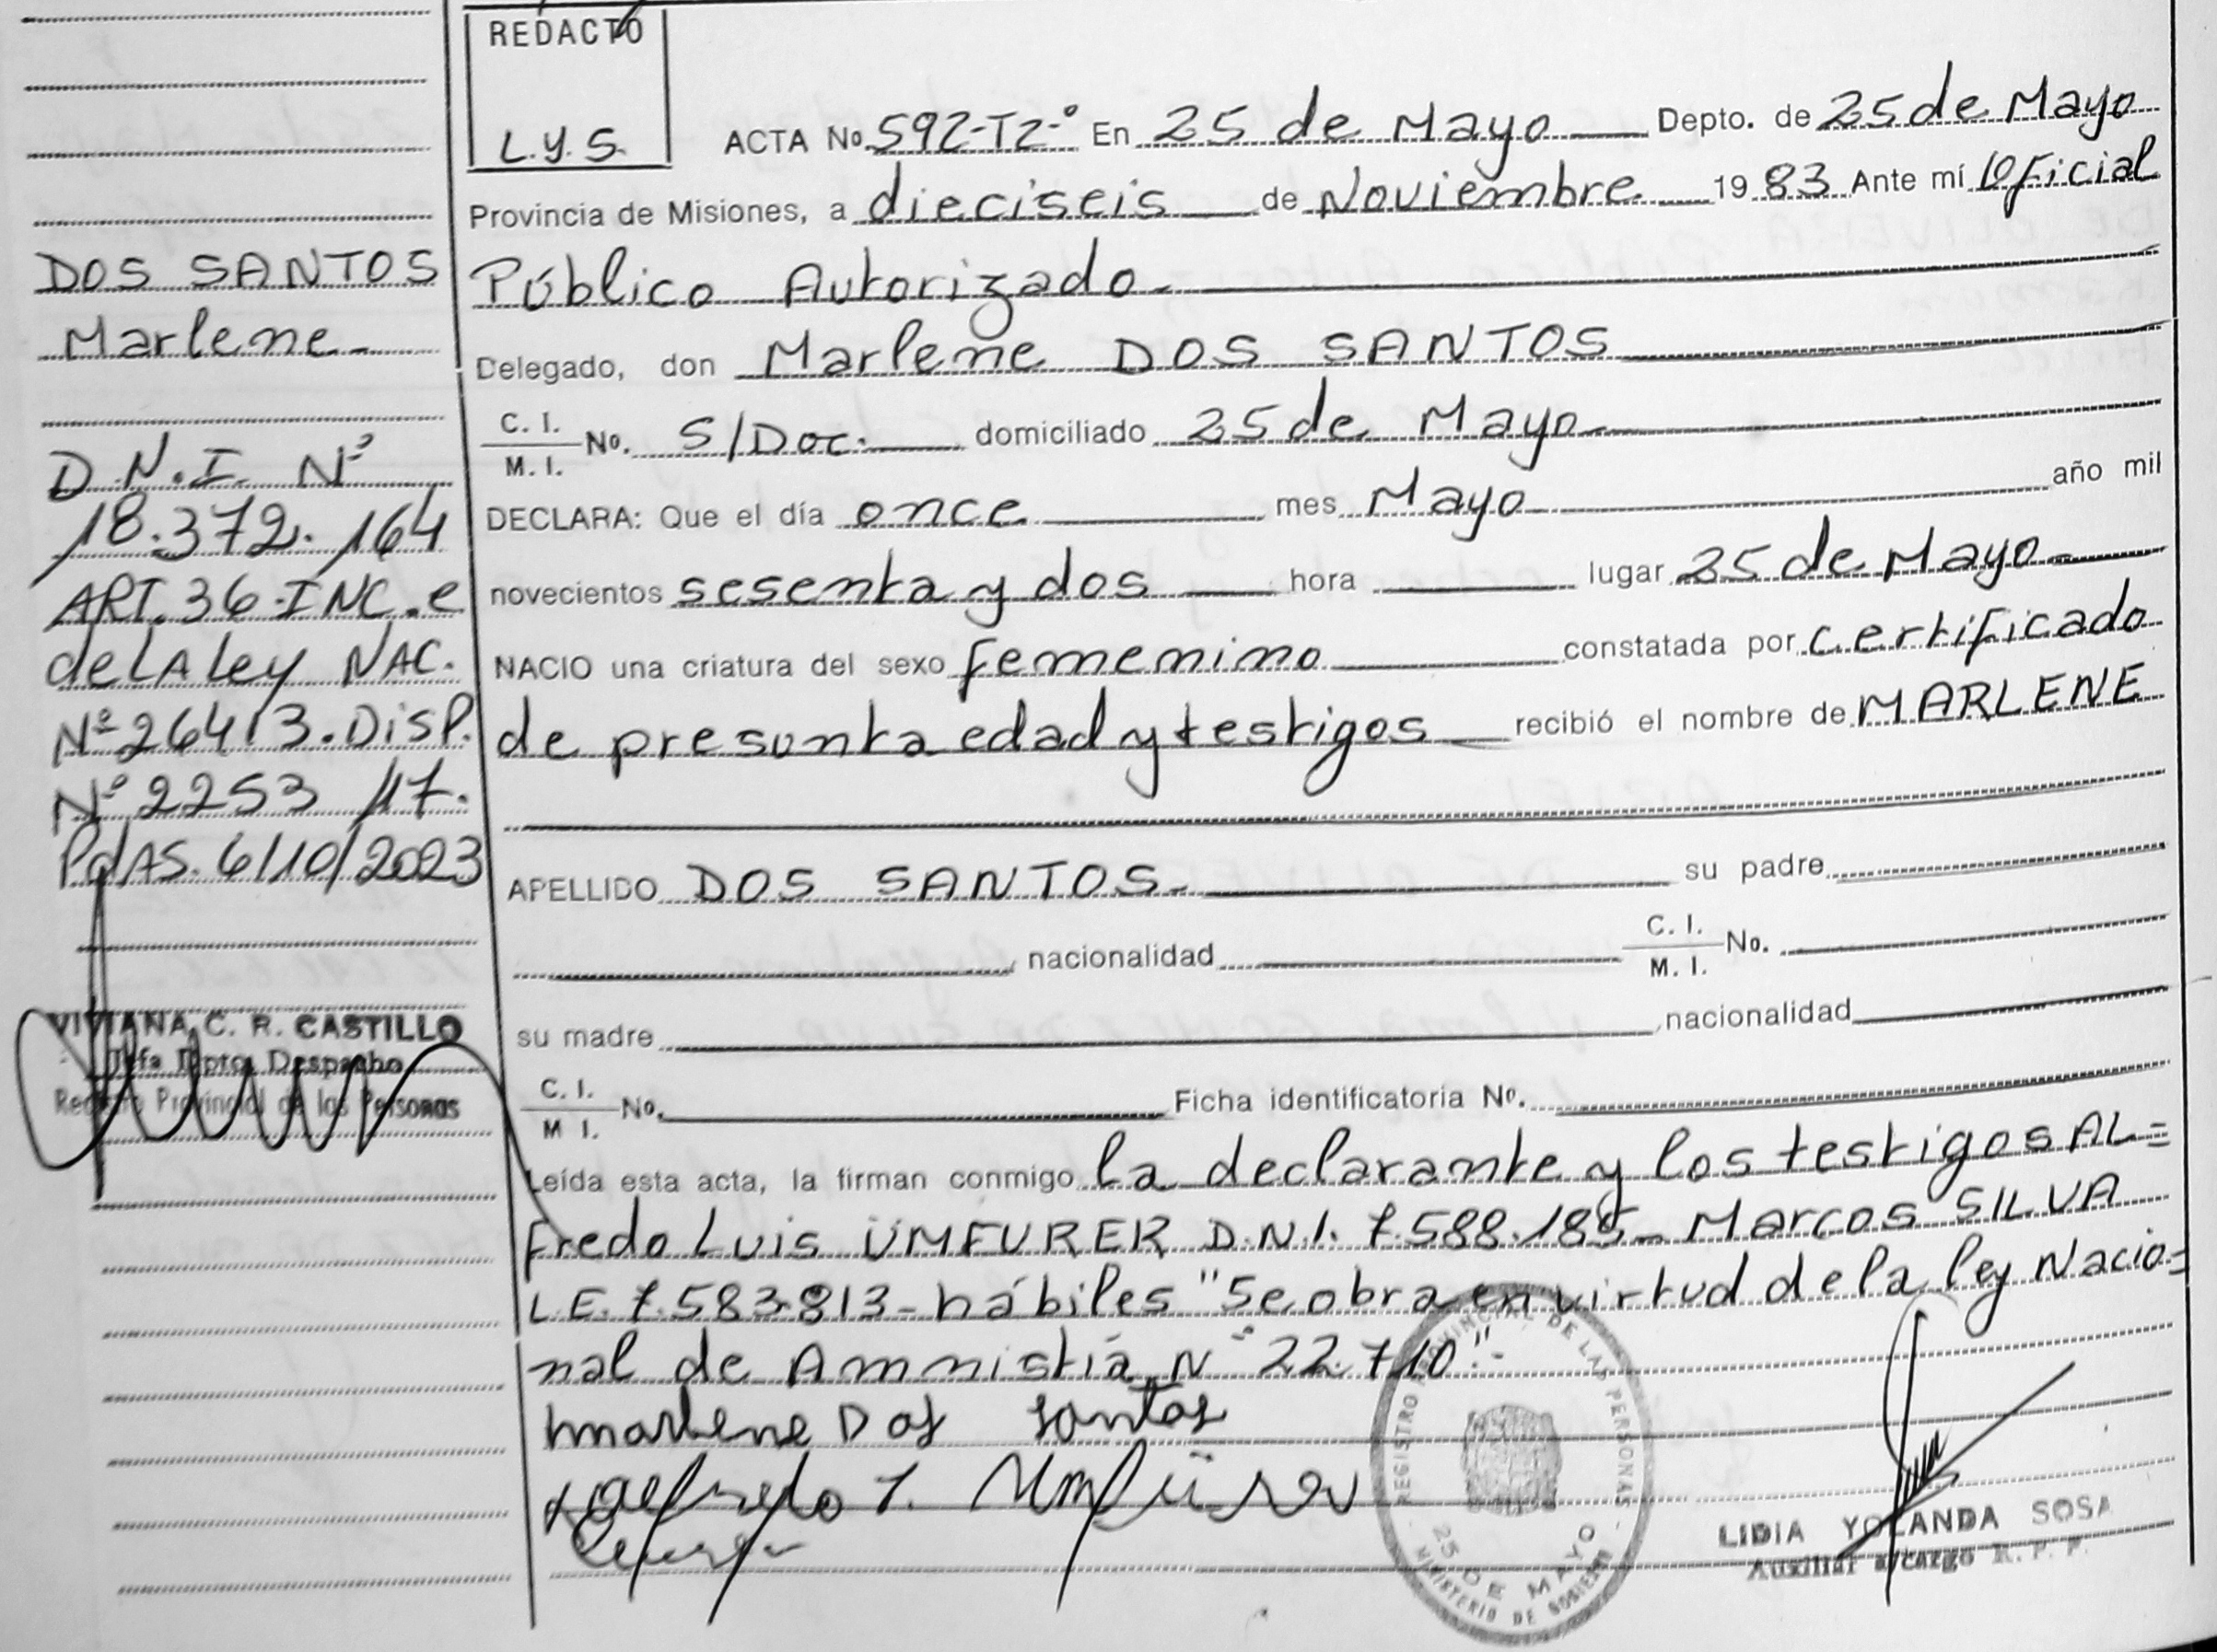 REDACTÓ
L.Y.S.
ACTA No. 592-T2-° En 25 de Mayo Depto. de 25 de Mayo
Provincia de Misiones, a dieciseis de Noviembre 19 83 Ante mí Oficial
Público Autorizado-
Delegado, don Marlene DOS SANTOS
C. I.
M. I. No. S/Doc. domiciliado 25 de Mayo-
DECLARA: Que el día once mes Mayo año mil
novecientos sesenta y dos hora lugar 25 de Mayo-
NACIO una criatura del sexo femenino constatada por certificado
de presunta edad y testigos recibió el nombre de MARLENE
APELLIDO DOS SANTOS- su padre
nacionalidad C. I.
M. I. No.
su madre nacionalidad
C. I.
M I. No. Ficha identificatoria Nº.
Leída esta acta, la firman conmigo la declarante y los testigos AL=
fredo Luis ÜMFURER D.N.I. 7.588.185- Marcos SILVA
L.E. 7.583.813- hábiles "Se obra en virtud de la ley Nacio=
nal de Amnistía N° 22.710"-
Marlene Dos Santos
Alfredo L. Umfürer
LIDIA YOLANDA SOSA
Auxiliar a/cargo R. P. P.
REGISTRO PROVINCIAL DE LAS PERSONAS
25 DE MAYO
MINISTERIO DE GOBIERNO
DOS SANTOS
Marlene-
D.N.I. Nº
18.372.164
ART. 36-INC.e
de LA ley NAC.
Nº 26413. DISP.
Nº 2253 /17.
PdAS. 6/10/2023
VIVIANA C. R. CASTILLO
Jefa Dpto. Despacho
Registro Provincial de las Personas